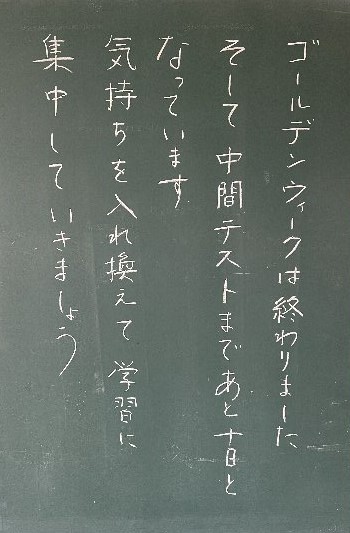 ゴールデンウィークは終わりました
そして中間テストまであと十日と
なっています
気持ちを入れ換えて学習に
集中していきましょう